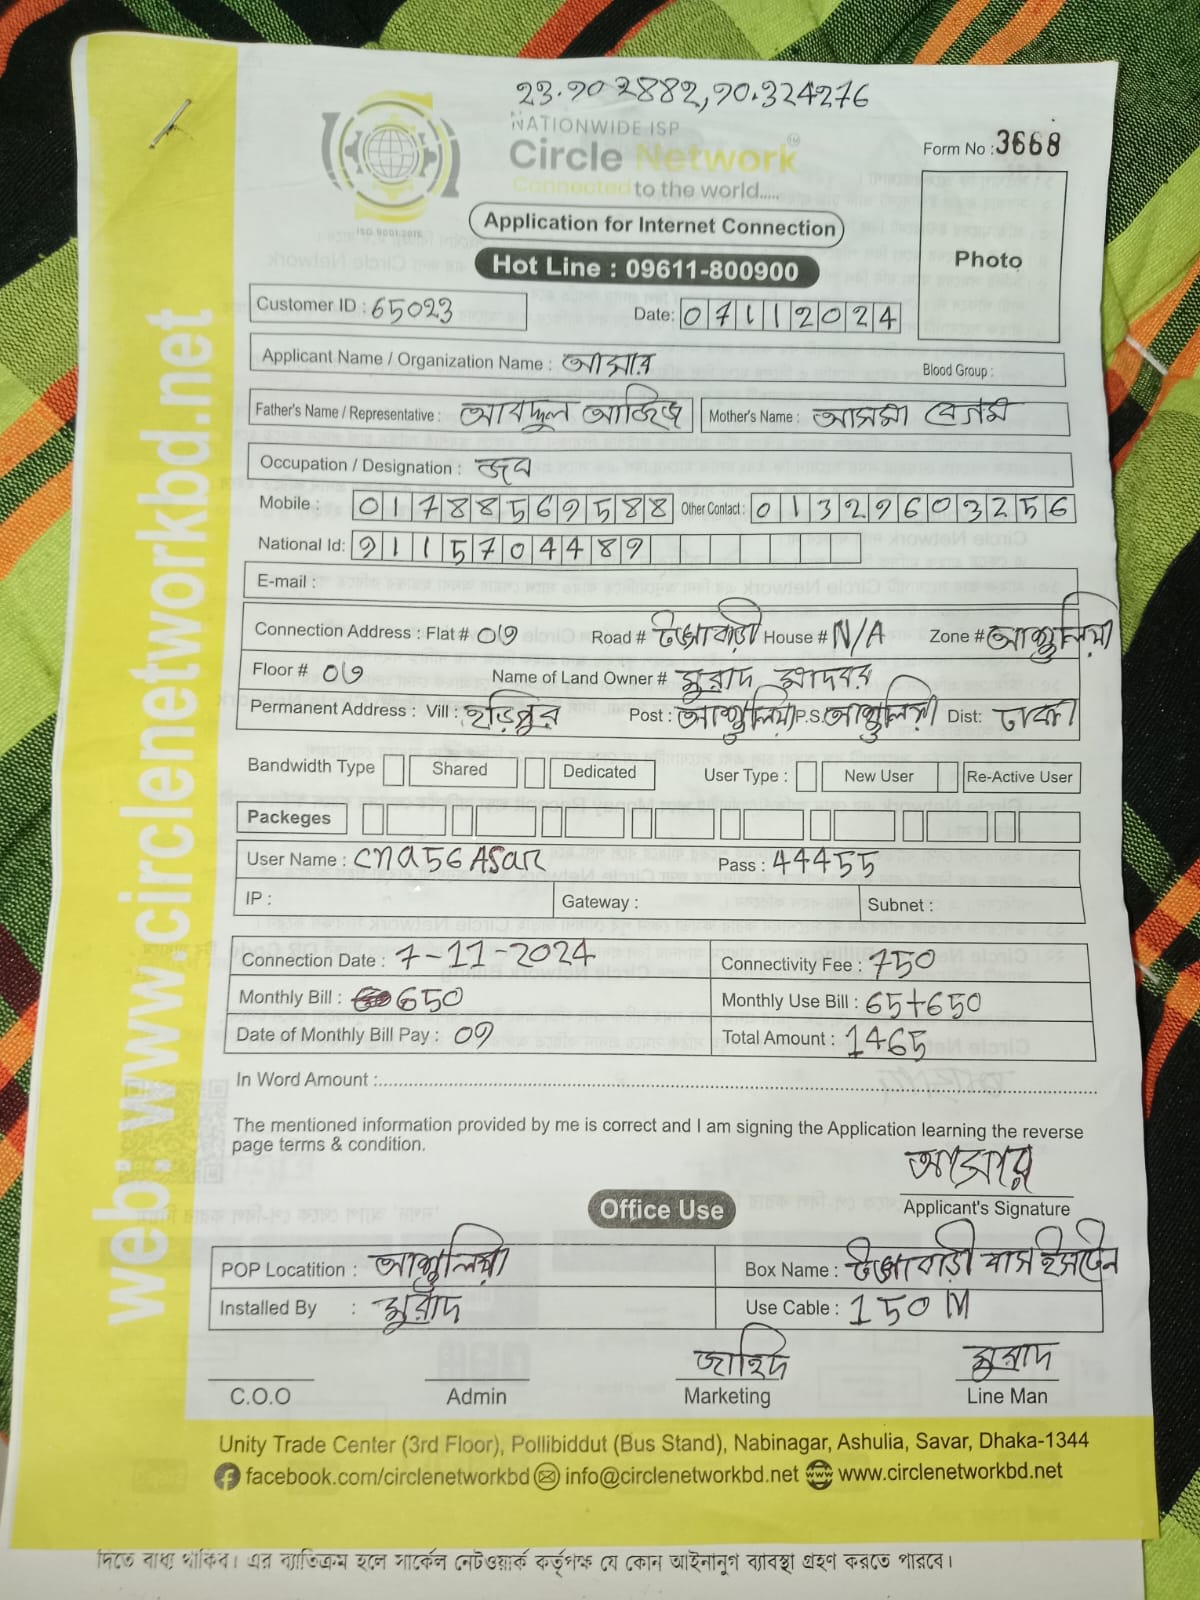 23.902882,90.324276
NATIONWIDE ISP
Circle Network
Connected to the world.....
ISO 9001:2015
Form No : 3668
Application for Internet Connection
Hot Line : 09611-800900
Photo
Customer ID : 65023 Date: 07112024
Applicant Name / Organization Name : আসার Blood Group :
Father's Name / Representative : আবদুল আজিজ Mother's Name : আসমা বেগম
Occupation / Designation : জব
Mobile : 01788569588 Other Contact : 01329603256
National Id: 9115704489
E-mail :
Connection Address : Flat # 03 Road # টঙ্গাবাড়ী House # N/A Zone # আশুলিয়া
Floor # 03 Name of Land Owner # মুরাদ মাদবর
Permanent Address : Vill : হড়িপুর Post : আশুলিয়া P.S. আশুলিয়া Dist: ঢাকা
Bandwidth Type Shared Dedicated User Type : New User Re-Active User
Packeges
User Name : cna56Asar Pass : 44455
IP : Gateway : Subnet :
Connection Date : 7-11-2024 Connectivity Fee : 750
Monthly Bill : 650 Monthly Use Bill : 65+650
Date of Monthly Bill Pay : 07 Total Amount : 1465
In Word Amount :
The mentioned information provided by me is correct and I am signing the Application learning the reverse
page terms & condition.
আসার
Applicant's Signature
Office Use
POP Locatition : আশুলিয়া Box Name : টঙ্গাবাড়ী বাস
Installed By : মুরাদ Use Cable : 150 M
জাহিদ মুরাদ
C.O.O Admin Marketing Line Man
Unity Trade Center (3rd Floor), Pollibiddut (Bus Stand), Nabinagar, Ashulia, Savar, Dhaka-1344
facebook.com/circlenetworkbd info@circlenetworkbd.net www.circlenetworkbd.net
web: www.circlenetworkbd.net
দিতে বাধ্য থাকিব। এর ব্যতিক্রম হলে সার্কেল নেটওয়ার্ক কর্তৃপক্ষ যে কোন আইনানুগ ব্যাবস্থা গ্রহণ করতে পারবে।